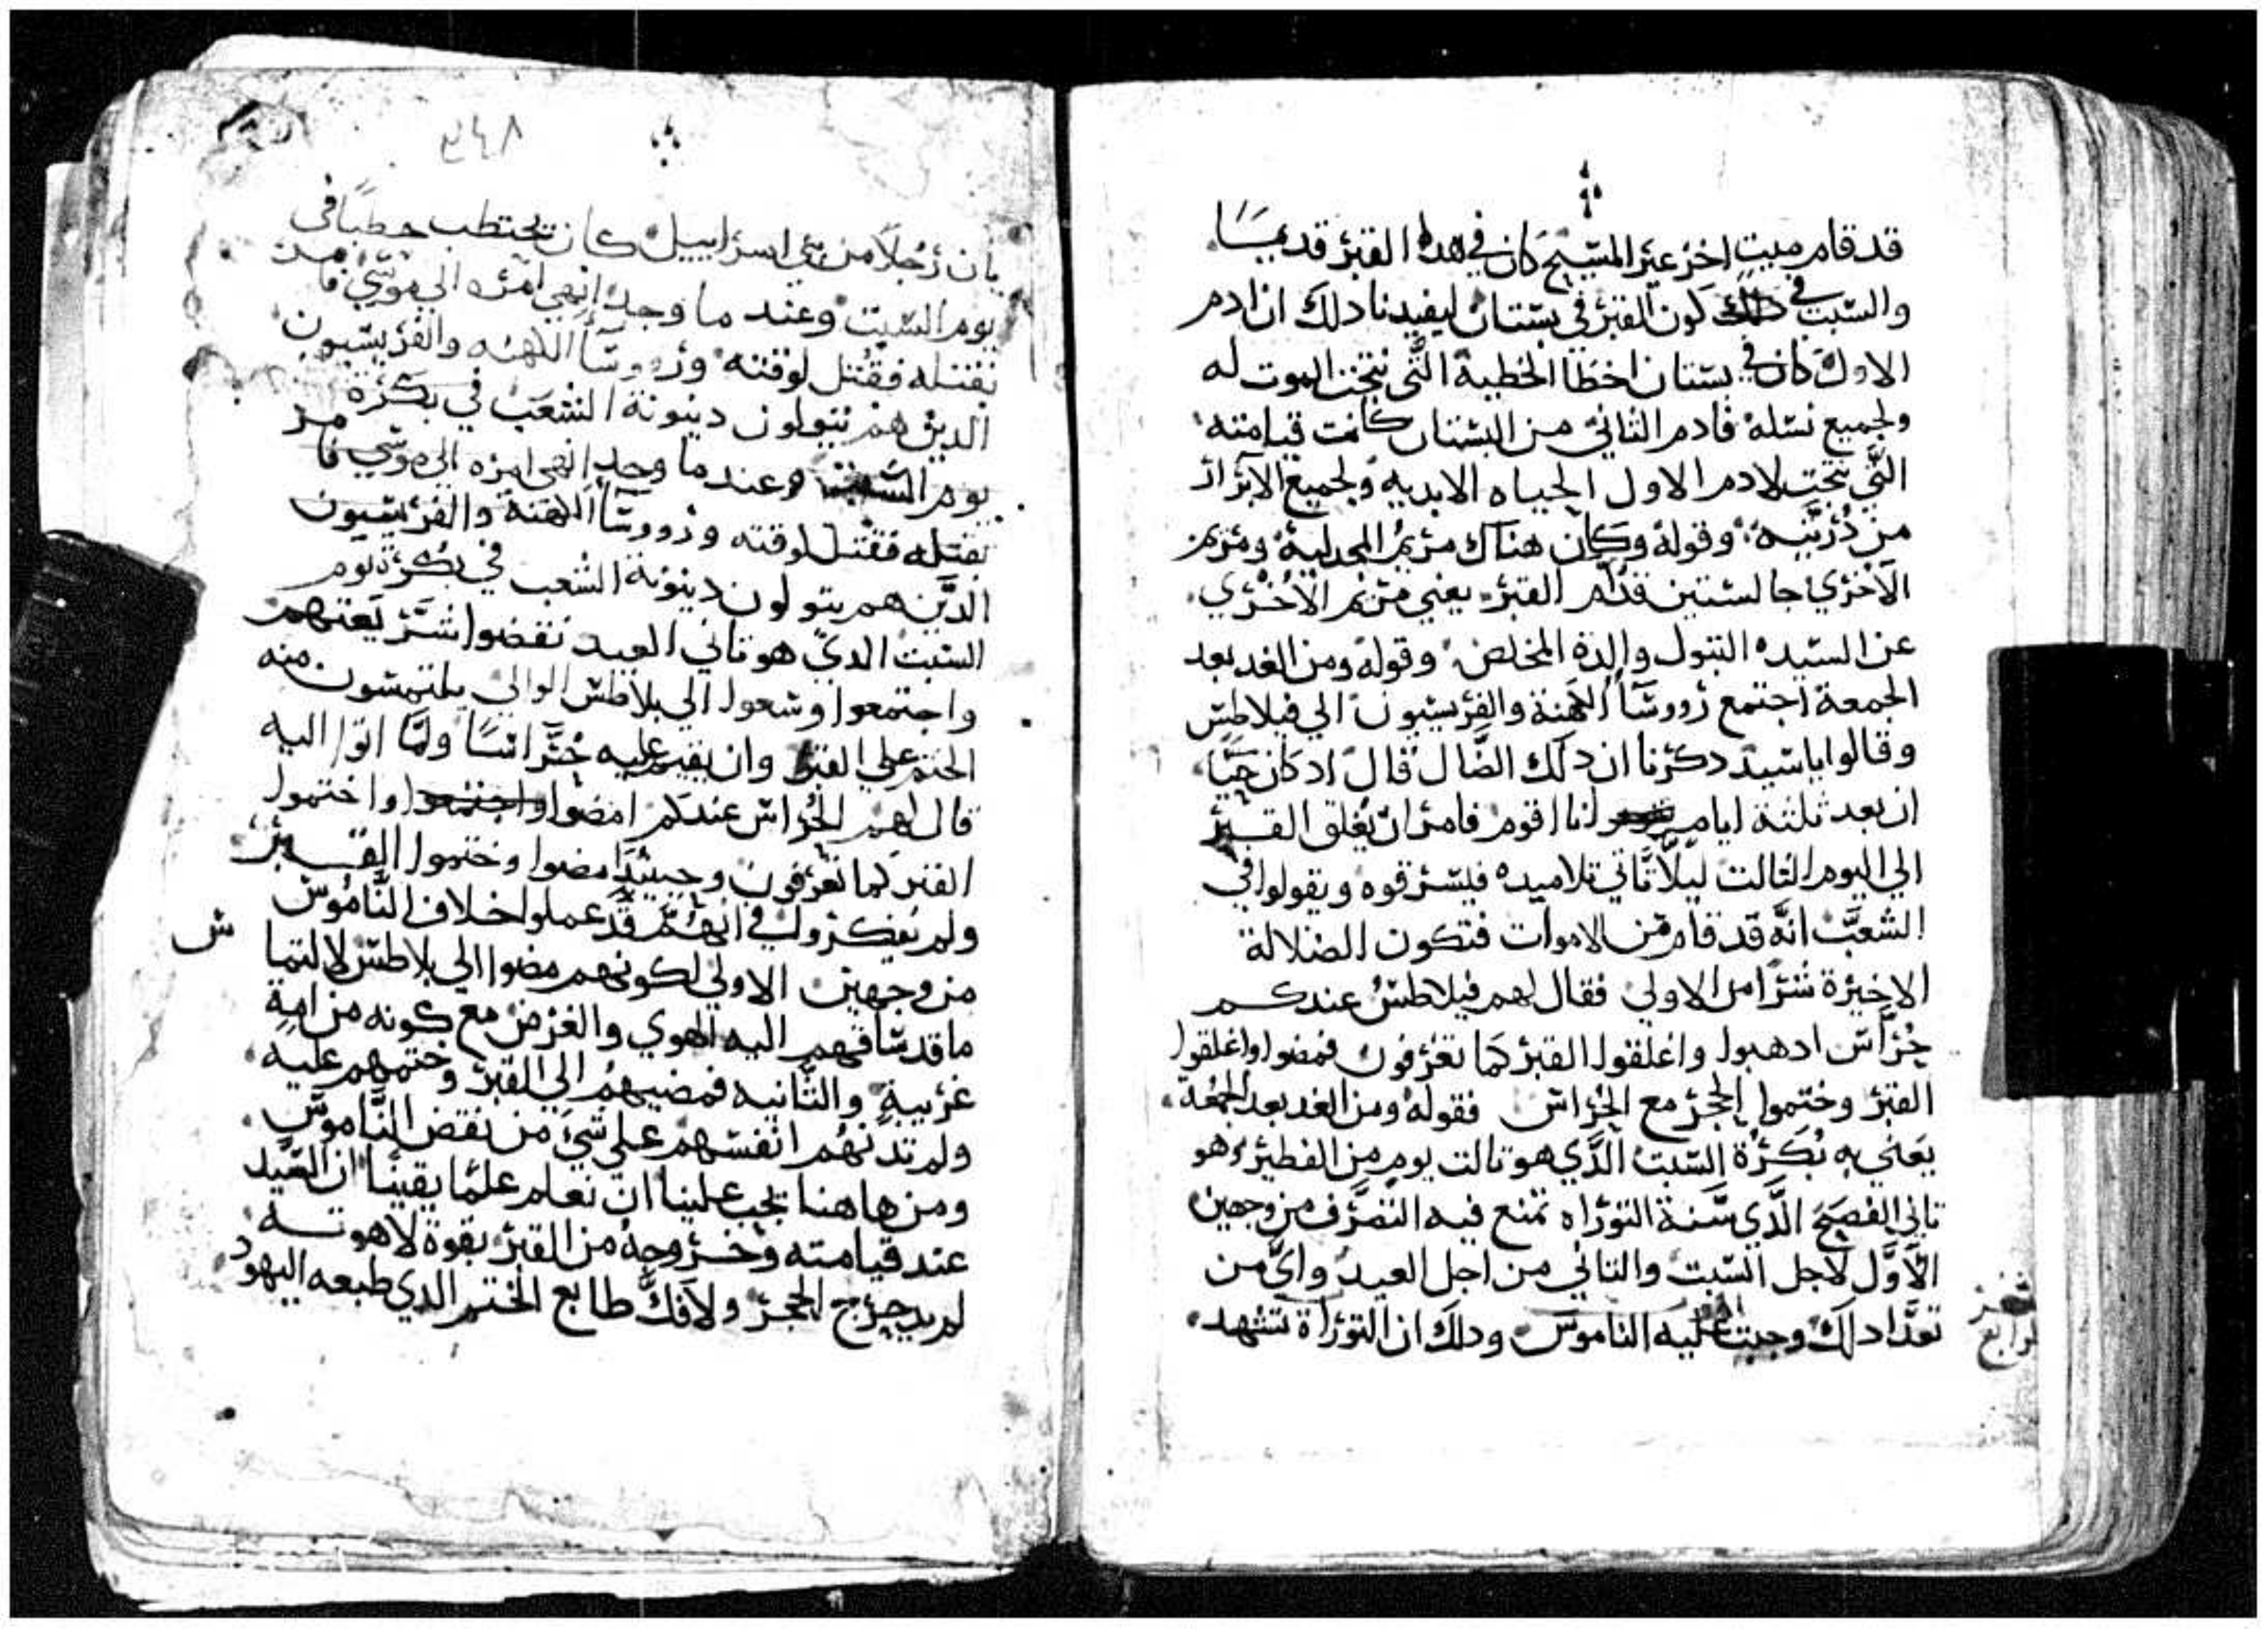 قد قام ميت اخر غير المسيح كان في هدا القبر قديمًا
والسبب في دلك كون القبر في بستان ليفيدنا دلك ان ادم
الاول كان في بستان اخطا الخطية التي نتجت الموت له
ولجميع نسله فادم الثاني من البستان كانت قيامته
التي نتجت لادم الاول الحياه الابديه ولجميع الابرار
من دريته وقوله وكان هناك مريم المجدلية ومريم
الاخري جالستين قدام القبر يعني مريم الاخري
عن السيده البتول والدة المخلص وقوله ومن الغد بعد
الجمعة اجتمع رووسا الكهنة والفريسيون الي فيلاطس
وقالوا ياسيد دكرنا ان دلك الضال قال اد كان حيًا
ان بعد ثلثة ايام انا اقوم فامر ان يغلق القبر
الي اليوم الثالت ليلا تاتي تلاميده فيسرقوه ويقولوا في
الشعب انه قد قام من الاموات فتكون الضلالة
الاخيرة شرًا من الاولي فقال لهم فيلاطس عندكم
حراس ادهبوا واغلقوا القبر كما تعرفون فمضوا واغلقوا
القبر وختموا الحجر مع الحراس فقوله ومن الغد بعد الجمعة
يعني به بكرة السبت الدي هو تالت يوم من الفطير وهو
تاني الفصح الدي سنة التوراه تمنع فيه التصرف من وجهين
الاول لاجل السبت والتاني من اجل العيد واي من
تعدا دلك وجبت عليه الناموس ودلك ان التوراة تشهد
٣٤٨
بان رجلًا من بني اسراييل كان يحتطب حطبًا في
يوم السبت وعند ما وجد انهي امره الي موسي فامر
بقتله فقتل لوقته ورووسا الكهنه والفريسيون
الدين هم يتولون دينونة الشعب في بكرة
يوم السبت وعند ما وجد انهي امره الي موسي فامر
بقتله فقتل لوقته ورووسا الكهنة والفريسيون
الدين هم يتولون دينونة الشعب في بكرة يوم
السبت الدي هو تاني العيد نقضوا شريعتهم
واجتمعوا وسعوا الي بلاطس الوالي يلتمسون منه
الختم علي القبر وان يقيم عليه حراسًا ولما اتوا اليه
قال لهم الحراس عندكم امضوا واجتمعوا واختموا
القبر كما تعرفون وحينيد امضوا وختموا القبر
ولم يفكروا في انهم قد عملوا خلاف الناموس
من وجهين الاولي لكونهم مضوا الي بلاطس لالتما س
ما قد ساقهم اليه الهوي والغرض مع كونه من امة
غريبة والتانيه فمضيهم الي القبر وختمهم عليه
ولم تدنهم انفسهم علي شي من نقض الناموس
ومن هاهنا يجب علينا ان نعلم علمًا يقينًا ان السيد
عند قيامته وخروجه من القبر بقوة لاهوته
لم يدحرج الحجر ولا فك طابع الختم الدي طبعه اليهود